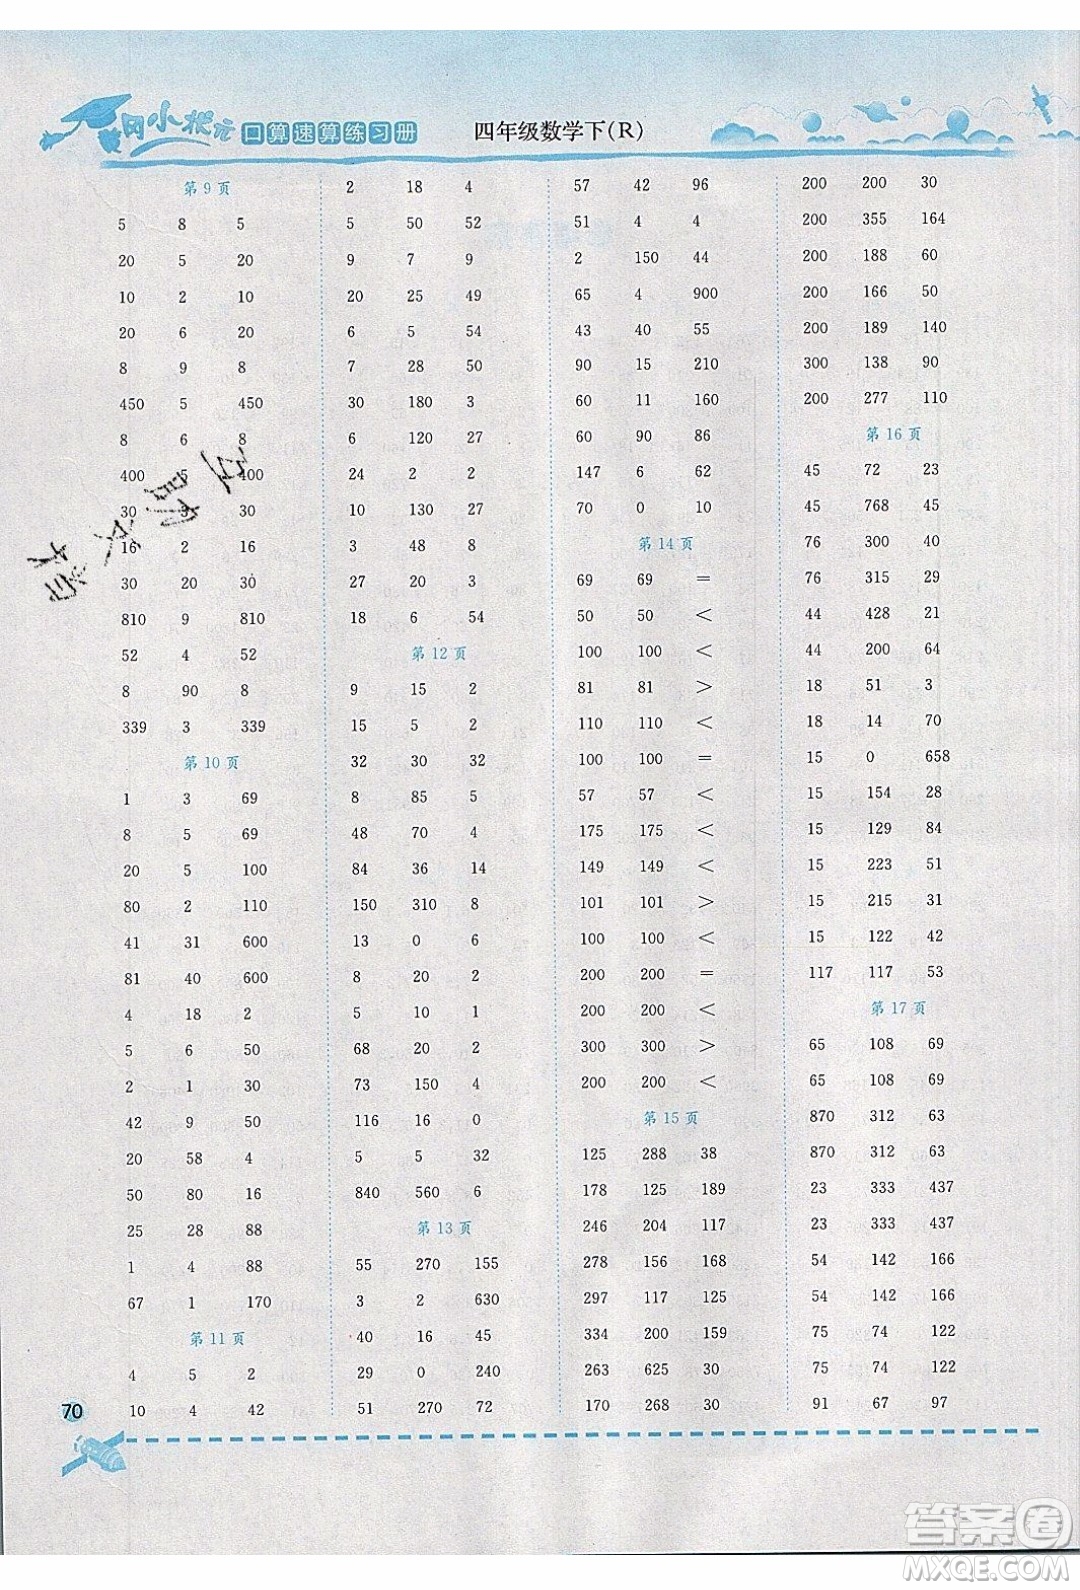 冈小状元
口算速算练习册
四年级数学下(R)
第9页
5 8 5
20 5 20
10 2 10
20 6 20
8 9 8
450 5 450
8 6 8
400 5 400
30 3 30
16 2 16
30 20 30
810 9 810
52 4 52
8 90 8
339 3 339
第10页
1 3 69
8 5 69
20 5 100
80 2 110
41 31 600
81 40 600
4 18 2
5 6 50
2 1 30
42 9 90
20 58 4
50 80 16
25 28 88
1 4 88
67 1 170
第11页
4 5 2
10 4 42
2 18 4
5 50 52
9 7 9
20 25 49
6 5 54
7 28 50
30 180 3
6 120 27
24 2 2
10 130 27
3 48 8
27 20 3
18 6 54
第12页
9 15 2
15 5 2
32 30 32
8 85 5
48 70 4
84 36 14
150 310 8
13 0 6
8 20 2
5 10 1
68 20 2
73 150 4
116 16 0
5 5 32
840 560 6
第13页
55 270 155
3 2 630
40 16 45
29 0 240
51 270 72
57 42 96
51 4 4
2 150 44
65 4 900
43 40 55
90 15 210
60 11 160
60 90 86
147 6 62
70 0 10
第14页
69 69 =
50 50 <
100 100 <
81 81 >
110 110 <
100 100 =
57 57 <
175 175 <
149 149 <
101 101 >
100 100 <
200 200 =
200 200 <
300 300 >
200 200 <
第15页
125 288 38
178 125 189
246 204 117
278 156 288
297 117 125
334 200 159
263 625 30
170 268 30
200 200 30
200 355 164
200 188 60
200 166 50
200 189 140
300 138 90
200 277 110
第16页
45 72 23
45 768 45
76 300 40
76 315 29
44 428 21
44 200 64
18 51 3
18 14 70
15 0 658
15 154 28
15 129 84
15 223 51
15 215 31
15 122 42
117 117 53
第17页
65 108 69
65 108 69
870 312 63
870 312 63
23 333 437
23 333 437
54 142 166
54 142 166
75 74 122
75 74 122
91 67 97
70
答案圈
MXQE.COM